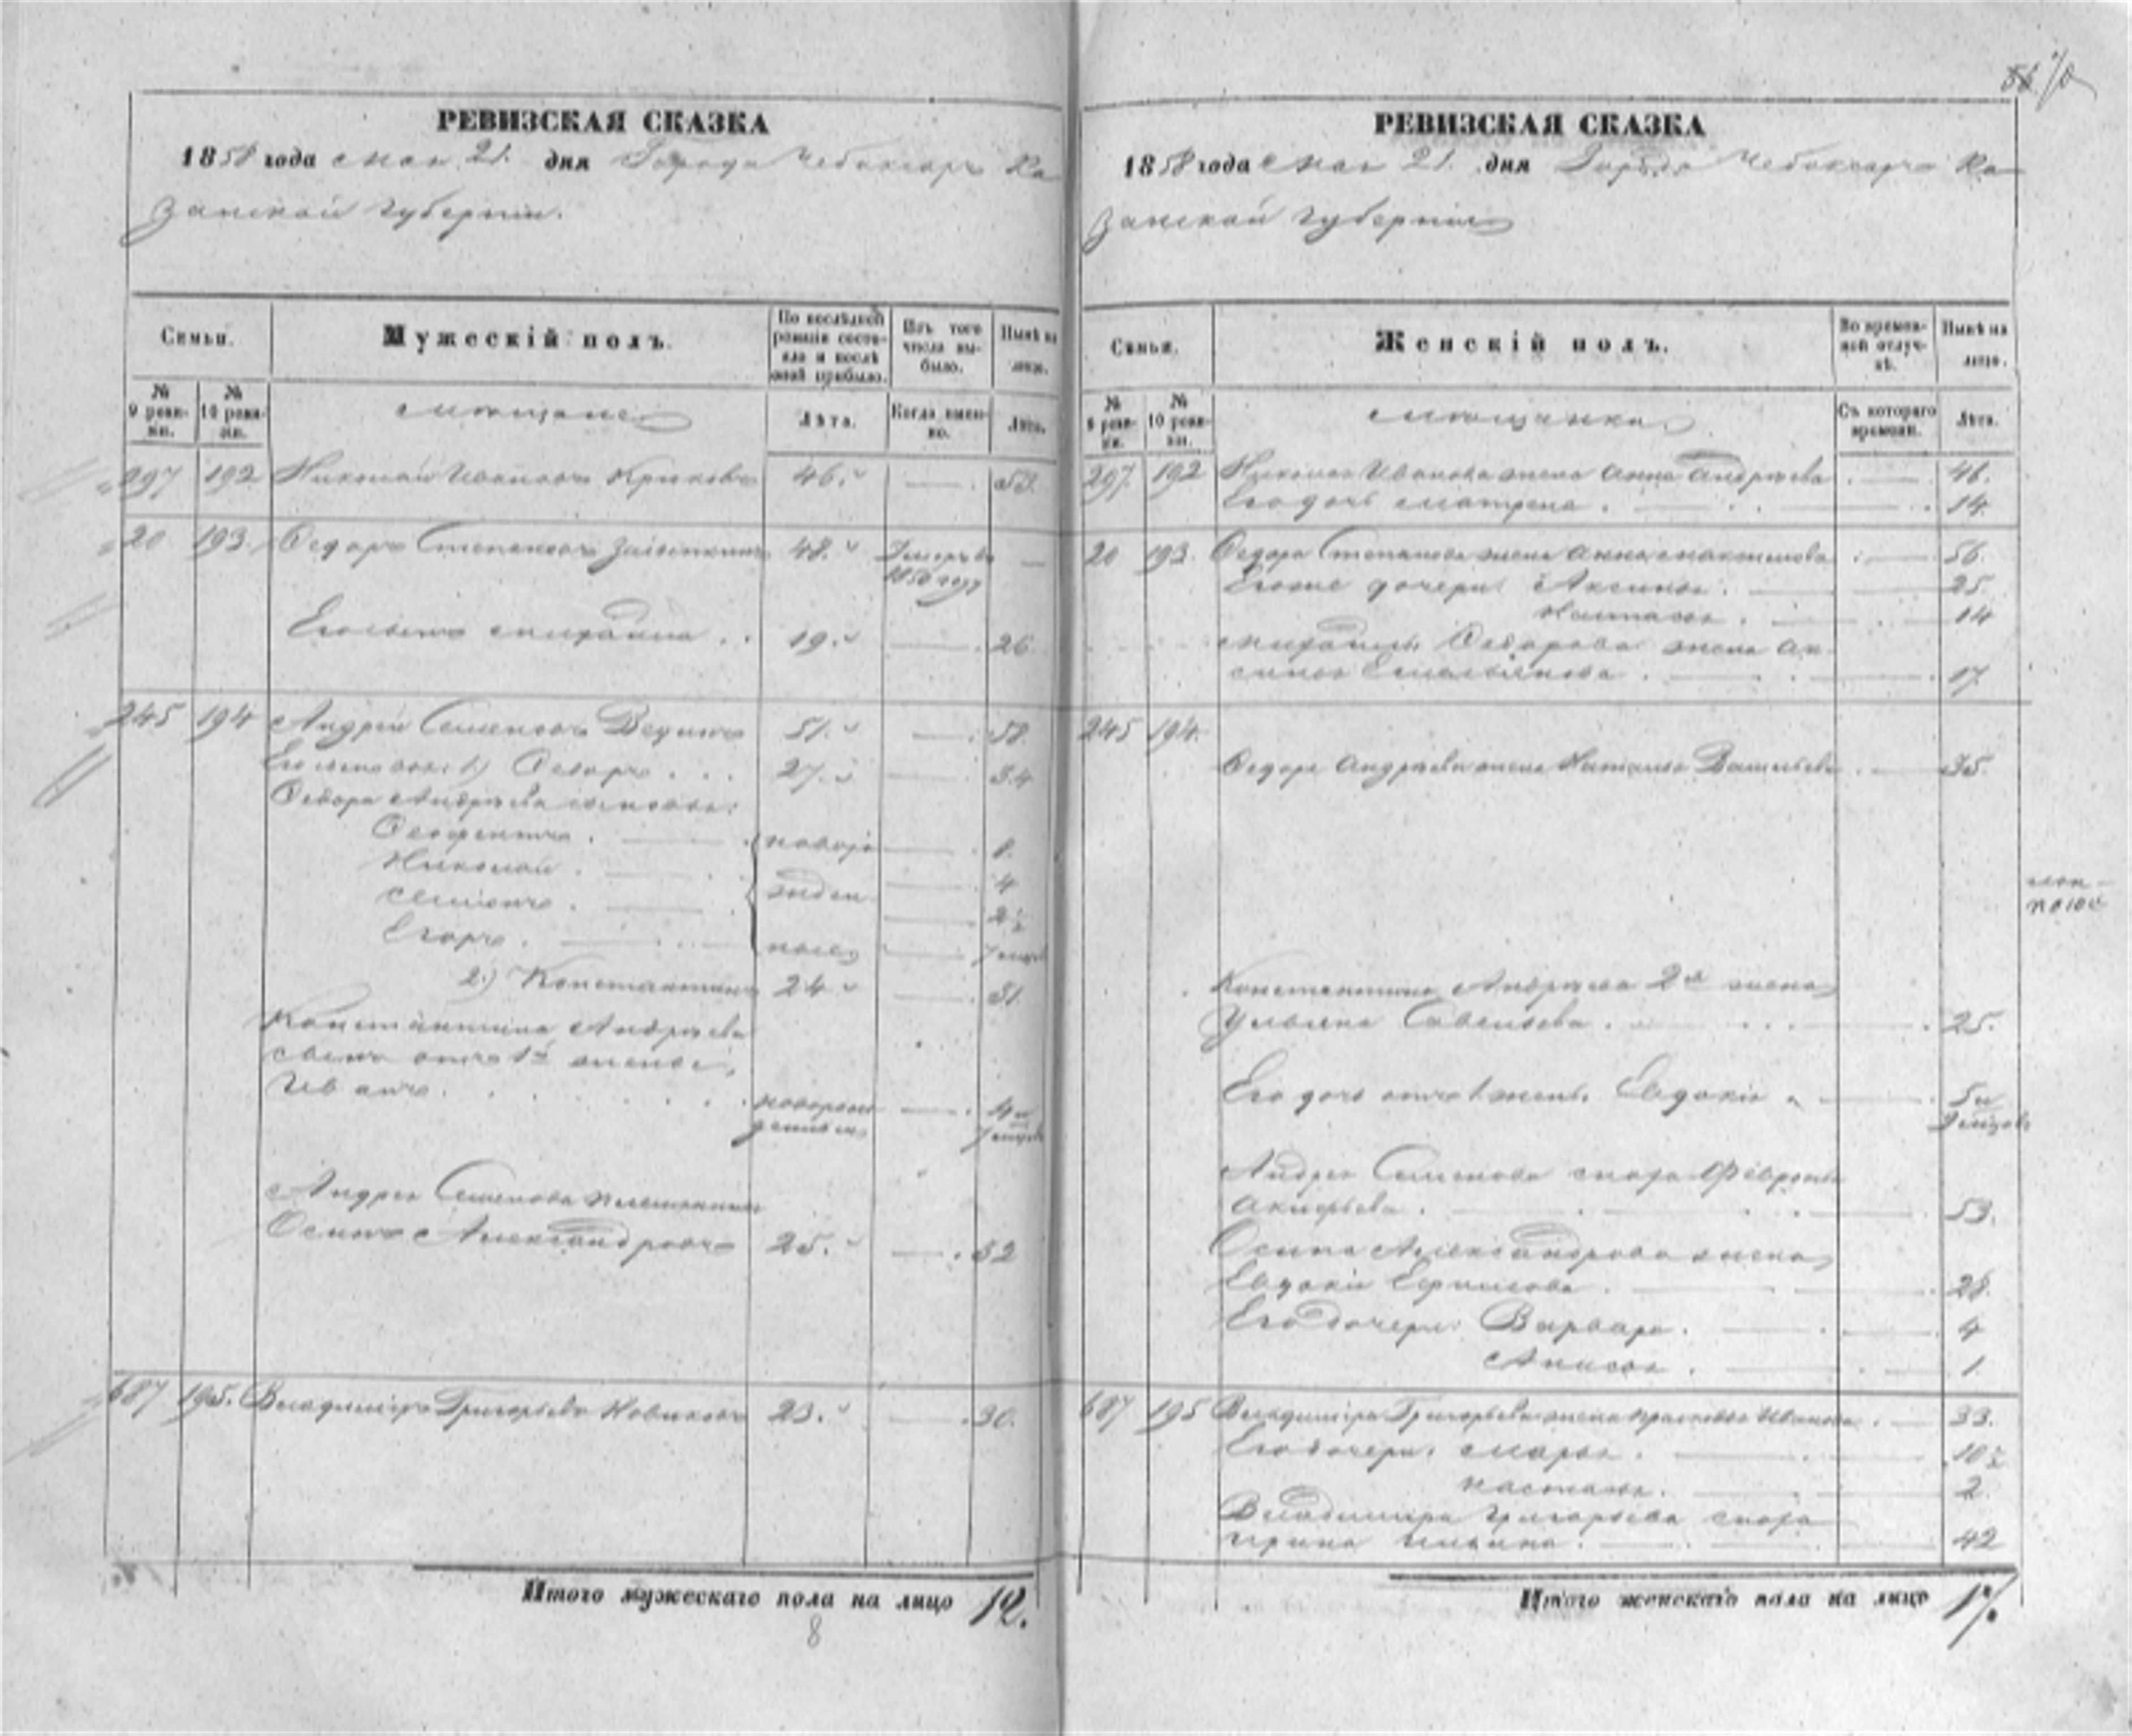 РЕВИЗСКАЯ СКАЗКА
1858 года Мая 21. дня Города Чебоксаръ Ка
занской губерніи.
Семьи.
Мужескій полъ.
По послѣдней ревизіи состояло и послѣ оной прибыло.
Изъ того числа выбыло.
Нынѣ на лицо.
№ 9 ревизіи.
№ 10 ревизіи.
Мѣщане
Лѣта.
Когда именно.
Лѣта.
297 192 Николай Ивановъ Крюковъ 46. 53.
20 193. Ѳедоръ Степановъ 48.
1856 году
Его сынъ Михайла 19. 26
245 194 Андрей Семеновъ Вединъ 51. 58.
Его сыновья: 1) Ѳедоръ 27. 34
Ѳедора Андреева сыновья:
8.
Николай 4
Семенъ 2½
Егоръ
новорожденные
2.) Константинъ 24 31.
Константина Андреева
сынъ отъ 1й жены,
Иванъ
новорожденный 4 и
Андрея Семенова племянникъ
Осипъ Александровъ 25. 32
687 195. Владиміръ Григорьевъ Новиковъ 23. 30.
Итого мужескаго пола на лицо 12.
8
РЕВИЗСКАЯ СКАЗКА
1858 года Мая 21. дня Города Чебоксаръ Ка
занской губерніи
Семьи.
Женскій полъ.
Во временной отлучкѣ.
Нынѣ на лицо.
№ 9 ревизіи.
№ 10 ревизіи.
Мѣщанки
Съ котораго времени.
Лѣта.
297. 192 Николая Иванова жена Анна Андреева 46.
Его дочь Матрена 14.
20 193. Ѳедора Степанова жена Анна Максимова 56.
Его же дочери: Аксинья 25
Настасья 14
Михайлы Ѳедорова жена Ак
синья Емельянова 17
245 194.
Ѳедора Андреева жена Наталья Васильева 35.
Константина Андреева 2я жена
Ульяна Савельева 25.
Его дочь отъ 1 жены Евдокія 5 и
Андрея Семенова сноха Ѳевронья
53.
Осипа Александрова жена
Евдокія Ефимова 28.
Его дочери: Варвара 4
Анисья 1.
687 195 Владиміра Григорьева жена Прасковья Иванова 33.
Его дочери: Марья 10½
Настасья 2.
Владиміра Григорьева сноха
Ирина Ильина 42
Итого женскаго пола на лицо 17.